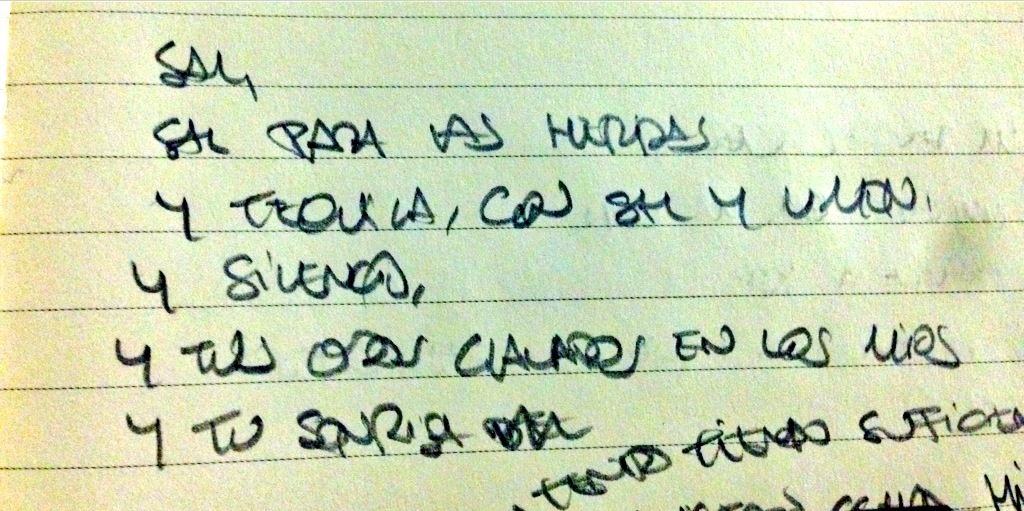 SAL,
SAL PARA LAS HERIDAS
Y TEQUILA, CON SAL Y LIMÓN.
Y SILENCIO,
Y TUS OJOS CLAVADOS EN LOS MIOS
Y TU SONRISA
TIEMPO SUFICIEN
MI